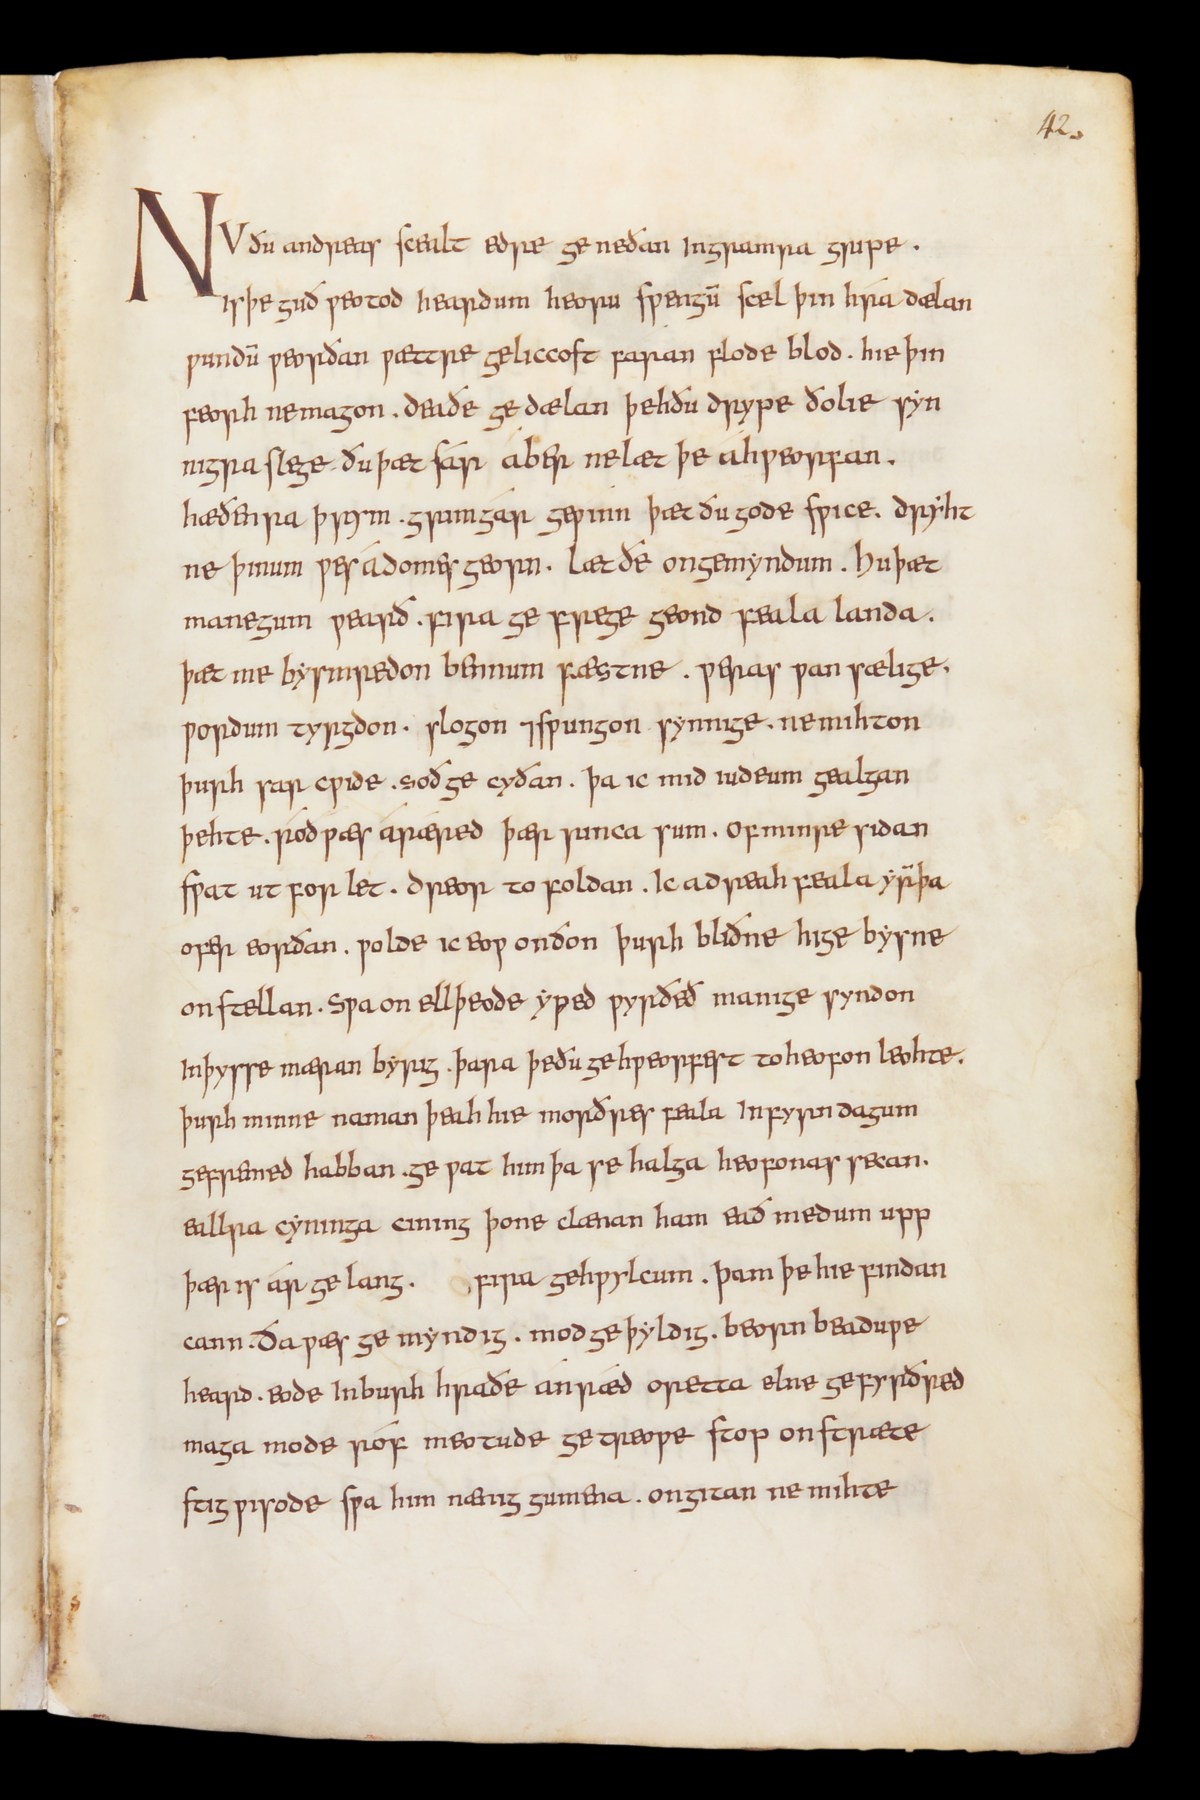 42.
NV ðu andreas scealt edre ge neðan Ingramra gripe .
is þe guð ƿeotod heardum heoru sƿengū scel þin hrá dælan
ƿundū ƿeorðan ƿættre geliccost faran flode blod . hie þin
feorh nemagon . deaðe ge dælan þehðu drype ðolie syn
nigra slege . ðu þæt sár áber ne læt þe áhƿeorfan .
hæðenra þrym . grim gár geƿinn þæt ðu gode sƿice . dryht
ne þinum ƿes á domes georn . læt ðe ongemyndum . hu þæt
manegum ƿearð . fira ge frege geond feala landa .
þæt me bysmredon bennum fæstne . ƿeras ƿan sælige .
ƿordum tyrgdon . slogon ⁊sƿungon synnige . ne mihton
þurh sar cƿide . soð ge cyðan . þa ic mid iudeum gealgan
þehte . ród ƿæs árǽred þær rinca sum . of minre sidan
sƿat ut for let . dreor to foldan . Ic adreah feala yrmþa
ofer eorðan . ƿolde ic eoƿ on ðon þurh bliðne hige bysne
onstellan . Sƿa on ellþeode yƿed ƿyrðeð manige syndon
Inþysse mæran byrig . þara þeðu gehƿeorfest toheofon leohte .
þurh minne naman þeah hie morðres feala In fyrn dagum
gefremed habban . ge ƿat him þa se halga heofonas secan .
eallra cyninga cining þone clænan ham eað medum upp
þær is ár ge lang . fira gehƿylcum . þam þe hie findan
cann . Ða ƿæs ge myndig . mod ge þyldig . beorn beaduƿe
heard . eode Inburh hraðe ánrǽd oretta elne gefyrðred
maga mode róf meotude ge treoƿe stop on strǽte
stig ƿisode sƿa him nænig gumena . ongitan ne mihte